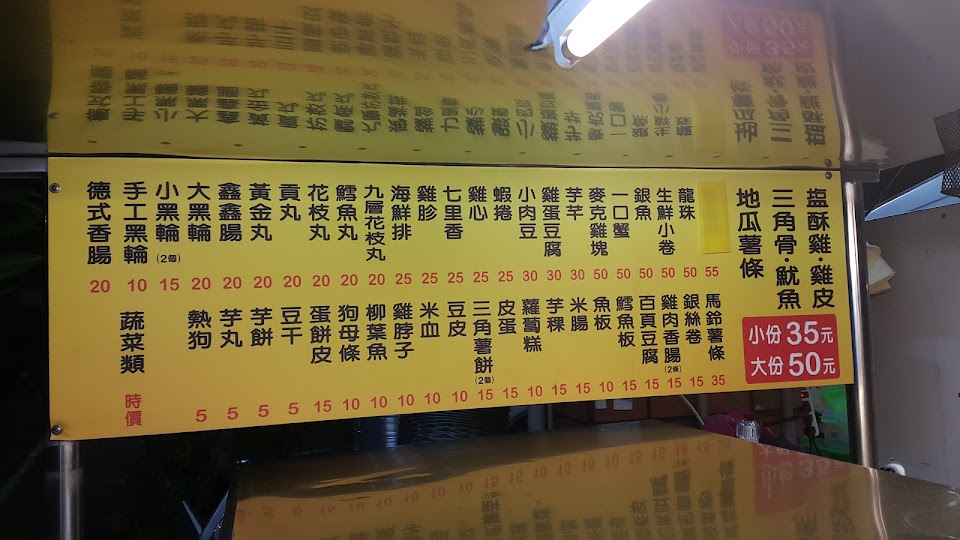 塩酥雞·雞皮
三角骨·魷魚
地瓜薯條
小份35元
大份50元
55
龍珠 50
生鮮小卷 50
銀魚 50
一口蟹 50
麥克雞塊 50
芋芋 30
雞蛋豆腐 30
小肉豆 30
蝦捲 25
雞心 25
七里香 25
雞胗 25
海鮮排 25
九層花枝丸 20
鱈魚丸 20
花枝丸 20
貢丸 20
黃金丸 20
鑫鑫腸 20
大黑輪 20
小黑輪(2個) 15
手工黑輪 10
德式香腸 20
馬鈴薯條 35
銀絲卷 15
雞肉香腸(2條) 15
百頁豆腐 15
鱈魚板 15
魚板 10
米腸 15
芋粿 15
蘿蔔糕 10
皮蛋 15
三角薯餅(2個) 15
豆皮 10
米血 10
雞脖子 10
柳葉魚 10
狗母條 10
蛋餅皮 15
豆干 5
芋餅 5
芋丸 5
熱狗 5
蔬菜類 時價